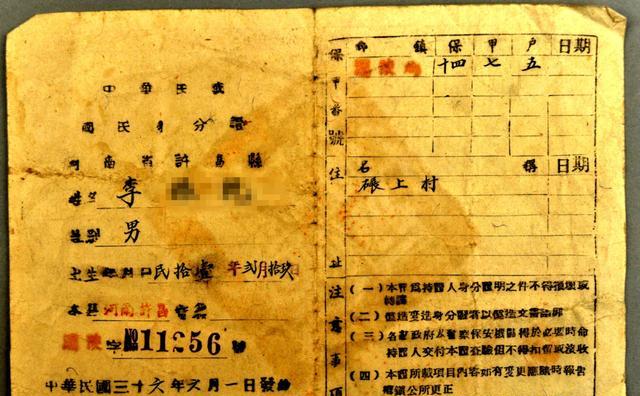 中華民國
國民身分證
河南省許昌縣
姓名 李
性別 男
出生 民 拾壹 年 弍月拾玖
本縣 河南許昌
字 №11256 號
中華民國三十六年 月一日發給
保甲番號
鄉 鎮 保 甲 户 日期
十四 七 五
住址
名 稱 日期
碾上村
注意事項
(一)本證為持證人身分證明之件不得損壞或
轉讓
(二)偽造變造身分證者以偽造文書論罪
(三)各省政府及軍憲保安機關得於必要時命
持證人交付本證查驗但不得扣留或沒收
(四)本證所載項目內容如有變更應隨時報告
鄉鎮公所更正